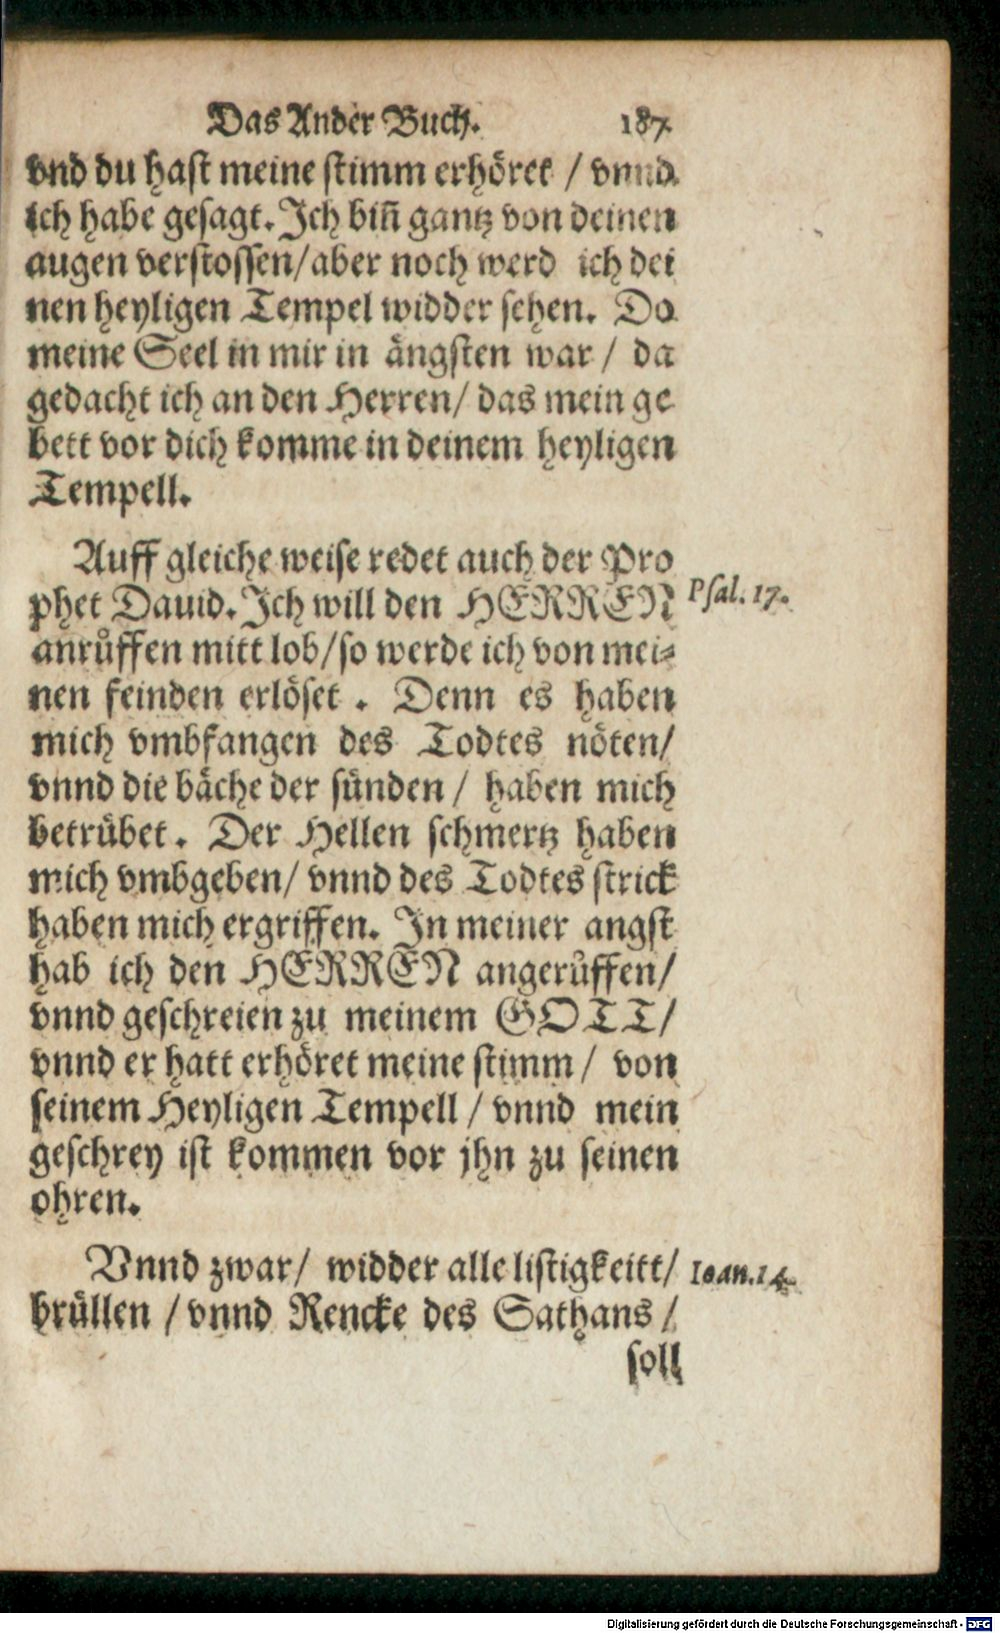 Das Ander Buch. 187.
vnd du hast meine stimm erhöret / vnnd
ich habe gesagt. Ich biñ gantz von deinen
augen verstossen/aber noch werd ich dei
nen heyligen Tempel widder sehen. Da
meine Seel in mir in ängsten war / da
gedacht ich an den Herren/ das mein ge
bett vor dich komme in deinem heyligen
Tempell.
Auff gleiche weise redet auch der Pro
phet Dauid. Ich will den HERREN Psal. 17.
anrůffen mitt lob/so werde ich von mei-
nen feinden erlöset . Denn es haben
mich vmbfangen des Todtes nöten/
vnnd die bäche der sünden / haben mich
betrübet . Der Hellen schmertz haben
mich vmbgeben/ vnnd des Todtes strick
haben mich ergriffen. In meiner angst
hab ich den HERREN angerůffen/
vnnd geschreien zu meinem GOTT/
vnnd er hatt erhöret meine stimm / von
seinem Heyligen Tempell / vnnd mein
geschrey ist kommen vor jhn zu seinen
ohren.
Vnnd zwar/ widder alle listigkeitt/ Ioan. 14.
brüllen / vnnd Rencke des Sathans /
soll
Digitalisierung gefördert durch die Deutsche Forschungsgemeinschaft - DFG